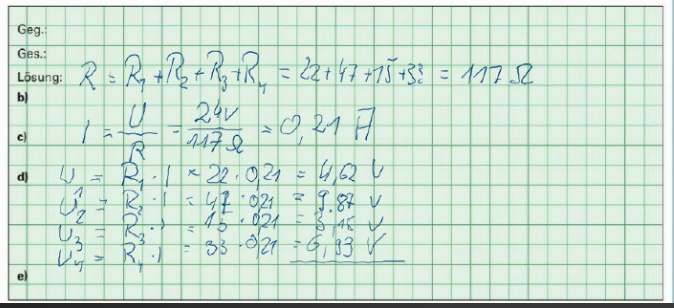 Geg.:
Ges.:
Lösung: R = R1 + R2 + R3 + R4 = 22+47+15+33 = 117 Ω
b)
c) I = U/R = 24V/117Ω = 0,21 A
d) U1 = R1 · I = 22 · 0,21 = 4,62 V
U2 = R2 · I = 47 · 0,21 = 9.87 V
U3 = R3 · I = 15 · 0,21 = 3,15 V
U4 = R4 · I = 33 · 0,21 = 6,93 V
e)